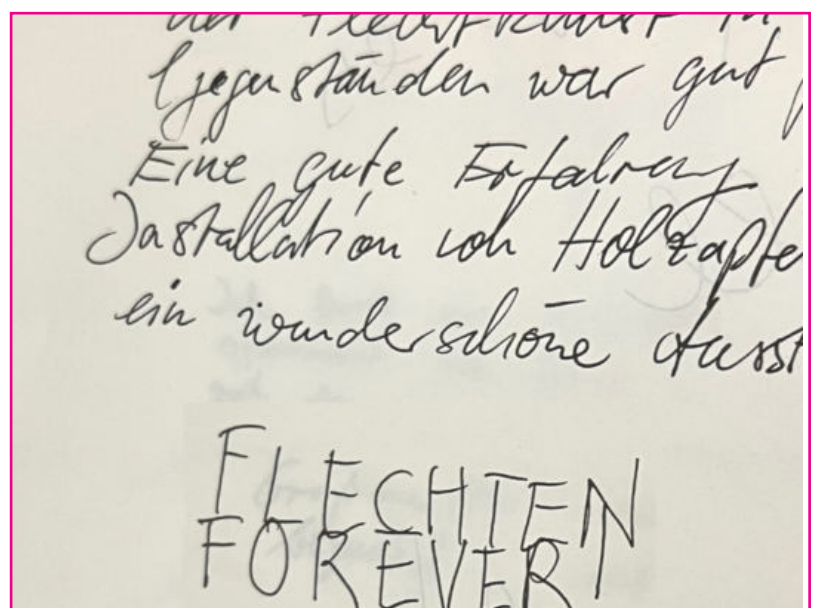 der Flechtkunst in
Gegenständen war gut
Eine gute Erfahrung
Installation von Holzapfe
ein wunderschöne Ausst
FLECHTEN
FOREVER